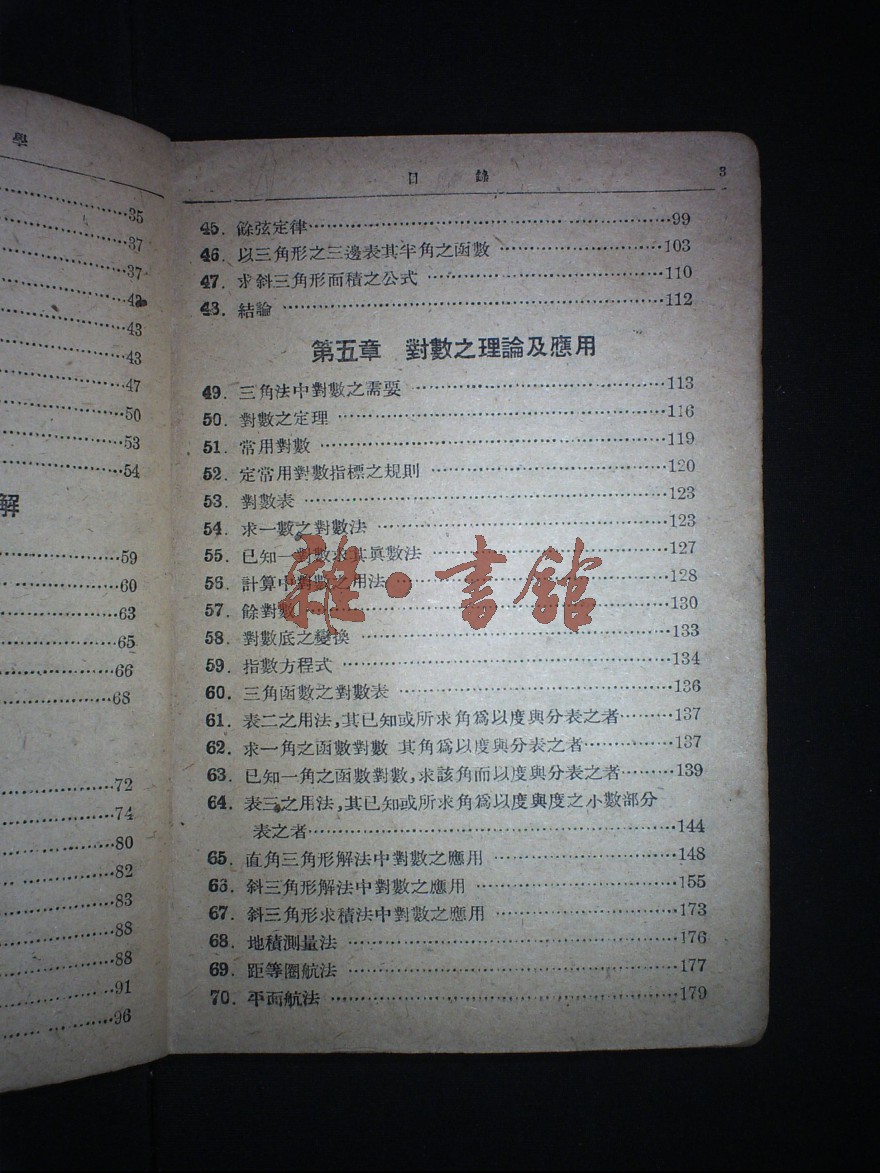 學
35
37
37
42
43
43
47
50
53
54
解
59
60
63
65
66
68
72
74
80
82
83
88
88
91
96
目 錄 3
45. 餘弦定律 99
46. 以三角形之三邊表其半角之函數 103
47. 求斜三角形面積之公式 110
48. 結論 112
第五章 對數之理論及應用
49. 三角法中對數之需要 113
50. 對數之定理 116
51. 常用對數 119
52. 定常用對數指標之規則 120
53. 對數表 123
54. 求一數之對數法 123
55. 已知一對數求其眞數法 127
56. 計算中對數之用法 128
57. 餘對數 130
58. 對數底之變換 133
59. 指數方程式 134
60. 三角函數之對數表 136
61. 表二之用法,其已知或所求角爲以度與分表之者 137
62. 求一角之函數對數 其角爲以度與分表之者 137
63. 已知一角之函數對數,求該角而以度與分表之者 139
64. 表三之用法,其已知或所求角爲以度與度之小數部分
表之者 144
65. 直角三角形解法中對數之應用 148
66. 斜三角形解法中對數之應用 155
67. 斜三角形求積法中對數之應用 173
68. 地積測量法 176
69. 距等圈航法 177
70. 平面航法 179
雜·書館